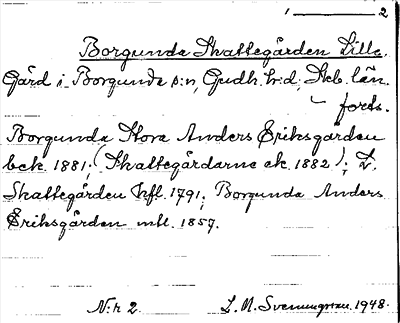 1 ——— 2
Borgunda Skattegården Lilla.
Gård i Borgunda s:n, Gudh. h:d; Skb. län.
forts.
Borgunda Stora Anders Eriksgården
bek. 1881; (Skattegårdarne ek. 1882); L.
Skattegården hfl. 1791; Borgunda Anders
Eriksgården mtl. 1857.
N:r 2. L. M. Svenungsson. 1948.